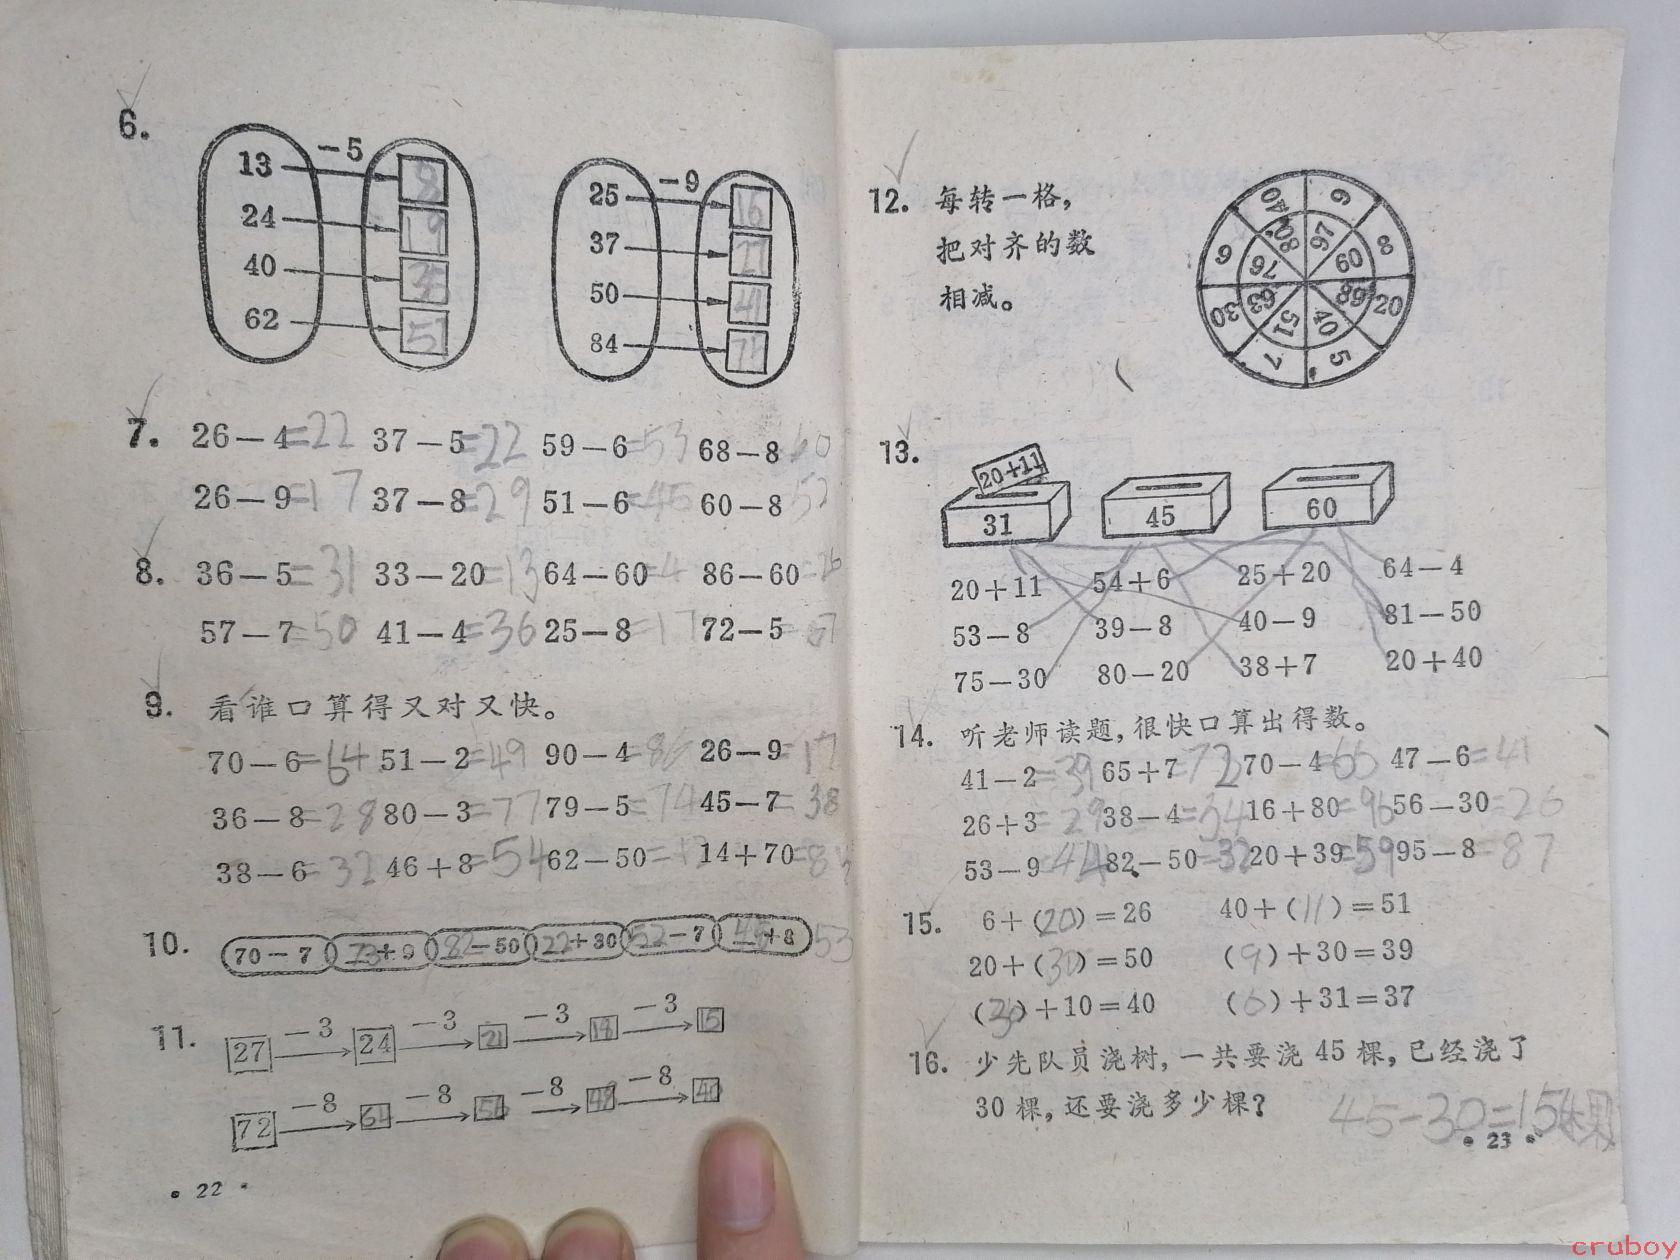 6.
13 −5 8
24 19
40 35
62 57
25 −9 16
37
50 41
84
7. 26−4=22 37−5=22 59−6=53 68−8 60
26−9=17 37−8=29 51−6=45 60−8 52
8. 36−5=31 33−20=13 64−60=4 86−60=26
57−7=50 41−4=36 25−8=17 72−5=67
9. 看谁口算得又对又快。
70−6=64 51−2=49 90−4=86 26−9=17
36−8=28 80−3=77 79−5=74 45−7=38
38−6=32 46+8=54 62−50= 14+70=84
10. 70−7 73+9 82−50 22+30 52−7 45+8 53
11. 27 −3 24 −3 21 −3 18 −3 15
72 −8 64 −8 56 −8 48 −8 40
• 22 •
12. 每转一格，
把对齐的数
相减。
40 9 8 20 5 7 30 6
80 97 60 89 40 51 63 76
13.
20+11
31 45 60
20+11 54+6 25+20 64−4
53−8 39−8 40−9 81−50
75−30 80−20 38+7 20+40
14. 听老师读题，很快口算出得数。
41−2=39 65+7=72 70−4=66 47−6=41
26+3=29 38−4=34 16+80=96 56−30=26
53−9=44 82−50=32 20+39=59 95−8=87
15. 6+(20)=26 40+(11)=51
20+(30)=50 (9)+30=39
(30)+10=40 (6)+31=37
16. 少先队员浇树，一共要浇 45 棵，已经浇了
30 棵，还要浇多少棵？ 45−30=15棵
• 23 •
cruboy